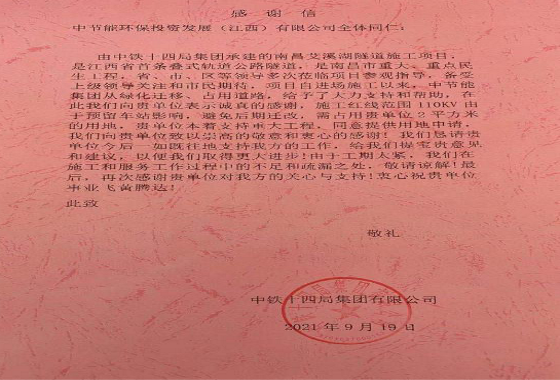 感 谢 信
中节能环保投资发展（江西）有限公司全体同仁：
由中铁十四局集团承建的南昌艾溪湖隧道施工项目，
是江西省首条叠式轨道公路隧道，是南昌市重大、重点民
生工程，省、市、区等领导多次莅临项目参观指导，备受
上级领导关注和市民期待。项目自进场施工以来，中节能
集团从绿化迁移、占用道路，给予了大力支持和帮助，在
此我们向贵单位表示诚真的感谢，施工红线范围 110KV 由
于预留车站影响，避免后期迁改，需占用贵单位 2 平方米
的用地，贵单位本着支持重大工程，同意提供用地申请，
我们向贵单位致以崇高的敬意和衷心的感谢！我们恳请贵
单位今后一如既往地支持我方的工作，给我们提宝贵意见
和建议，以便我们取得更大进步!由于工期太紧，我们在
施工和服务工作过程中的不足和疏漏之处，敬请谅解!最
后，再次感谢贵单位对我方的关心与支持!衷心祝贵单位
事业飞黄腾达!
此致
敬礼
中铁十四局集团有限公司
2021 年 9 月 19 日